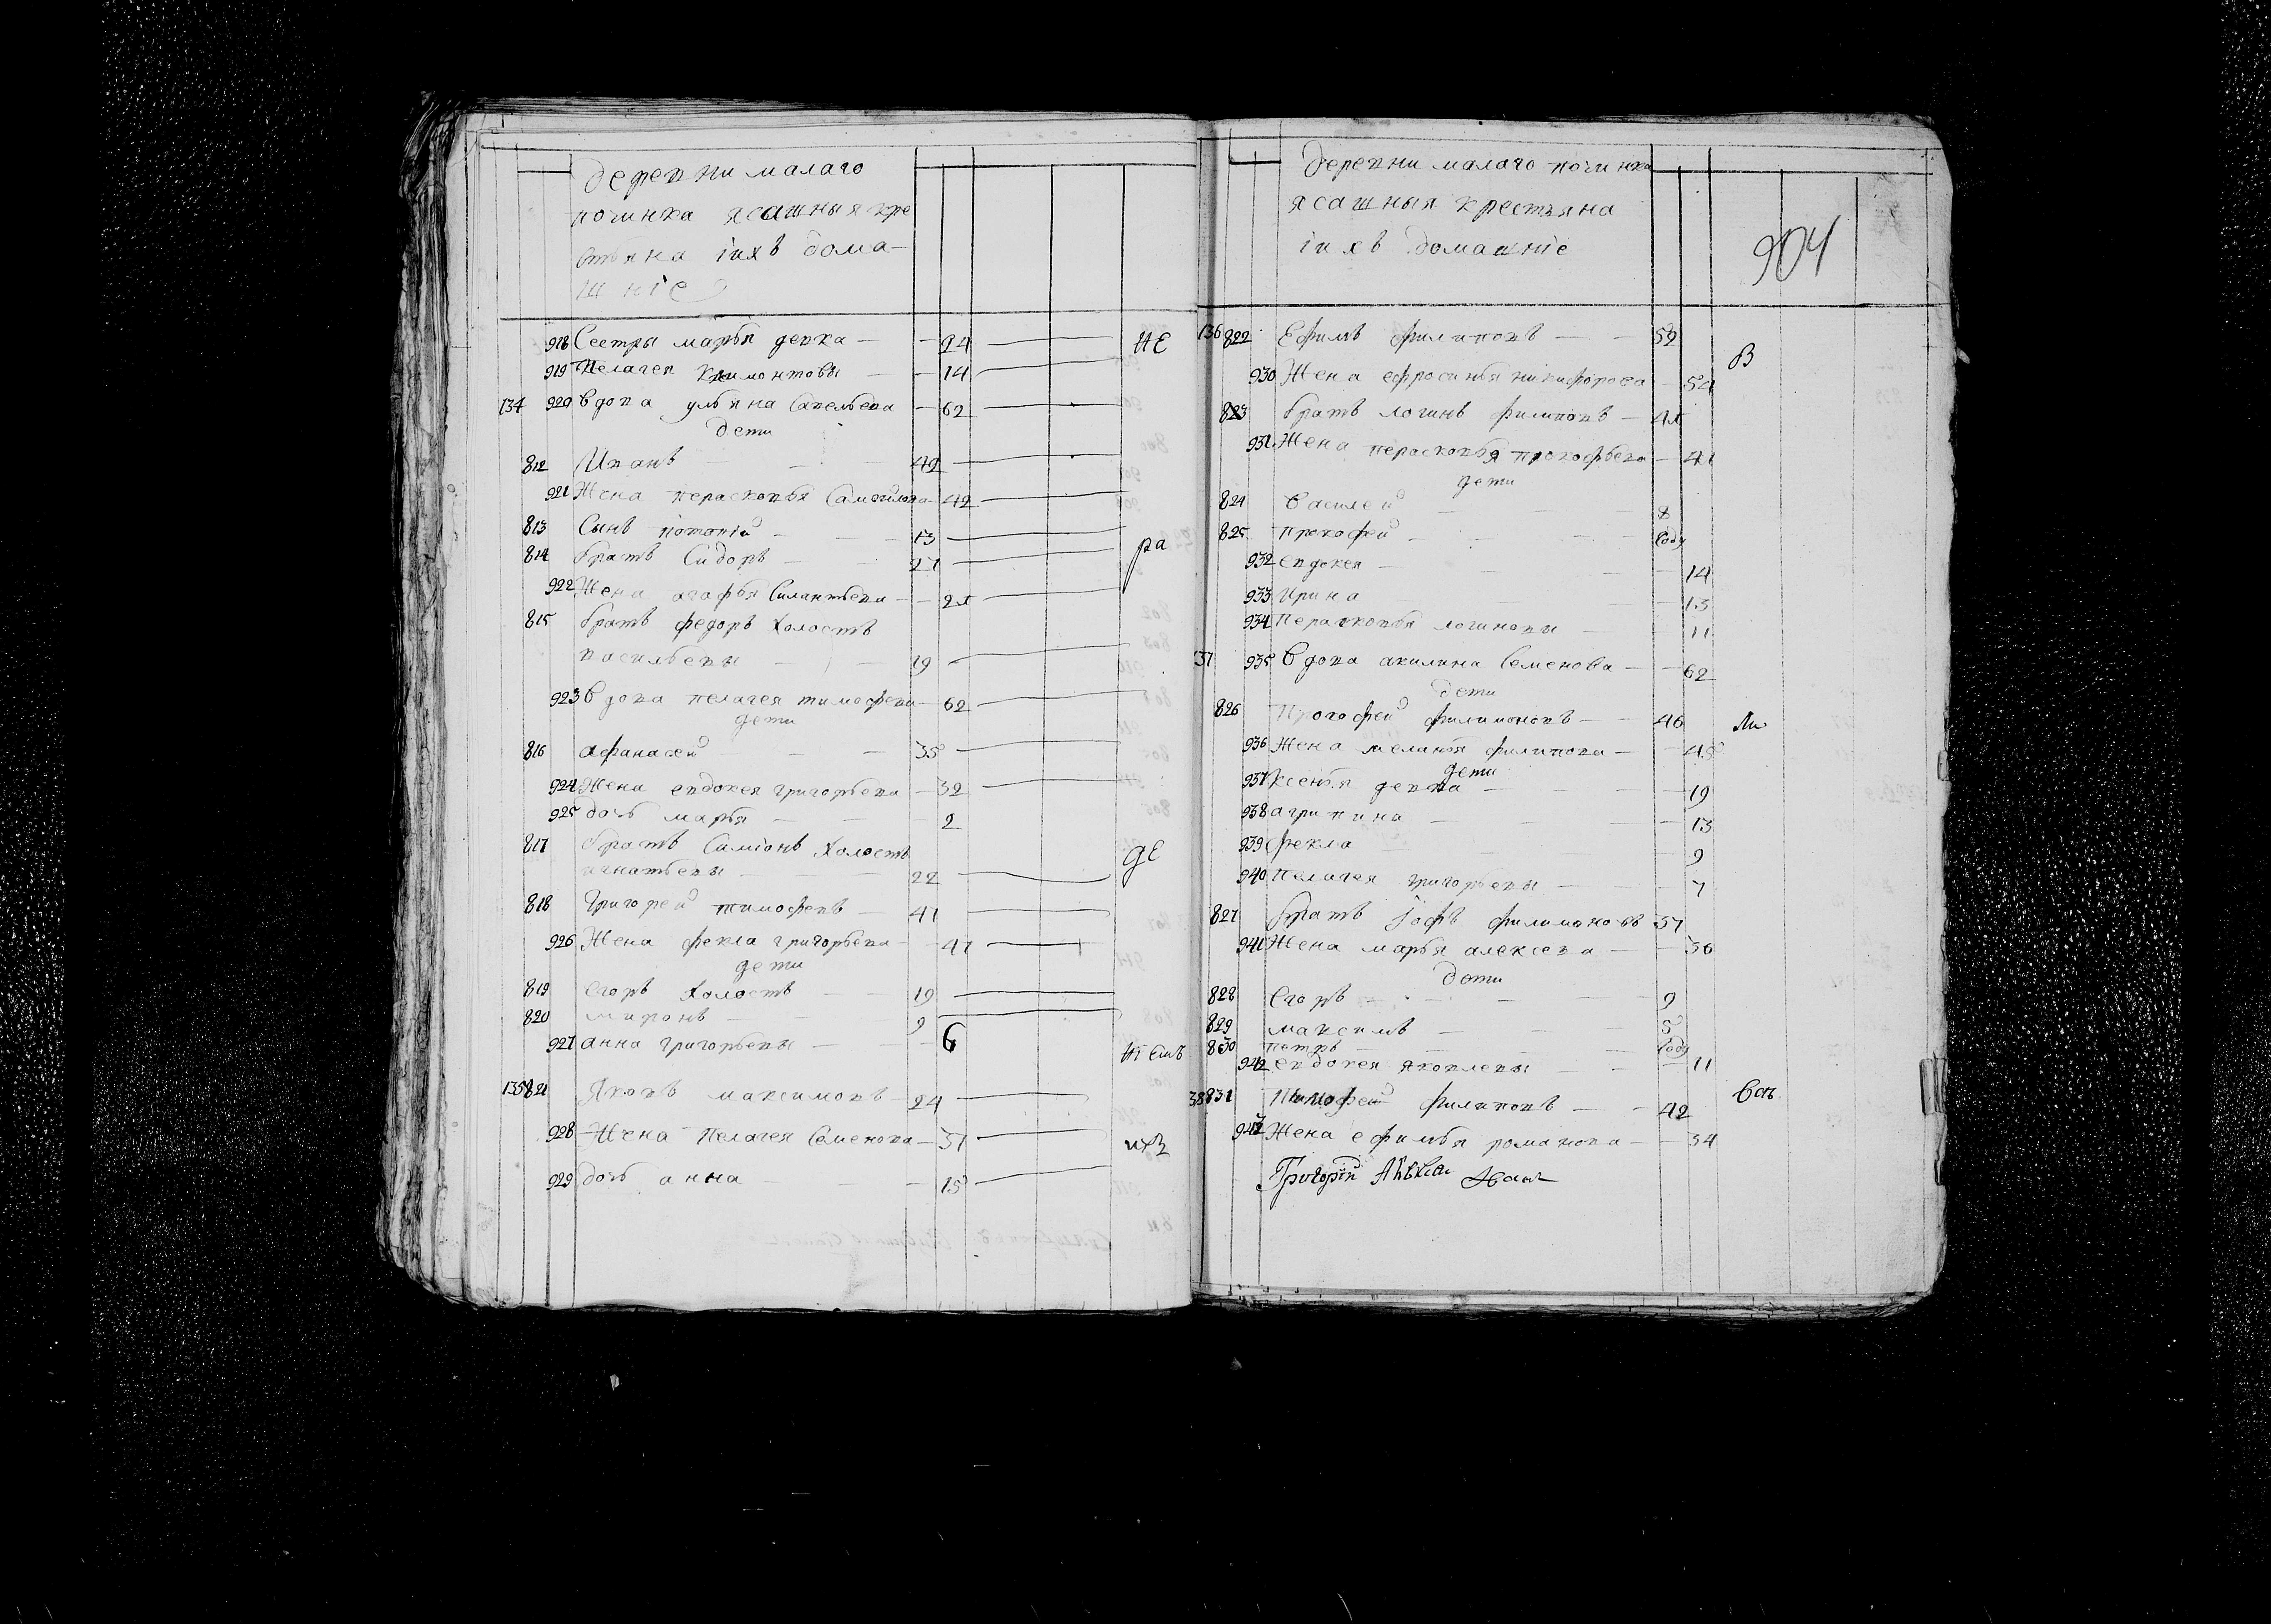 деревни малаго
починка ясашныя кре
стьяна ихъ дома-
шніе
918 Сестры марья девка 24 НЕ
919 Пелагея климонтовы 14
134 920 Вдова ульяна Савельева 62
дети
812 Иванъ 42
921 Жена перасковья Самойлова 42
813 Сынъ потапій 13
814 братъ Сидоръ 27 ра
922 Жена агафья Силантьева
815 братъ федоръ холостъ
васильевы 19
923 Вдова пелагея тимофева 62
дети
816 афанасей 35
924 Жена евдокея григорьева 32
925 дочь марья 2
817 братъ Симіонъ холостъ
игнатьевы 22 де
818 Григорей тимофевъ 47
926 Жена фекла григорьева 47
дети
819 егоръ холостъ 19
820 миронъ 9
927 анна григорьевы 6
135 821 Яковъ максимовъ 24
928 Жена Пелагея Семенова 37
929 дочь анна 15
деревни малаго починка
ясашныя крестьяна
ихъ домашніе
904
136 822 Ефимъ филиповъ 59 В
930 Жена ефросинья никифорова 54
823 братъ логинъ филиповъ
931 Жена перасковья прокофьева 41
дети
824 Василей 8
825 прокофей году
932 евдокея 14
933 Ирина 13
934 Перасковья логиновы 11
137 935 Вдова акилина Семенова 62
дети
826 филимоновъ 46
936 Жена меланья филипова 45
дети
937 Ксенья девка 19
938 агрипина 13
939 фекла 9
940 Пелагея григорьевы 7
827 братъ Іофъ филимоновъ 37
941 Жена марья алексева 36
дети
828 Егоръ 9
829 максимъ 5
830 петръ году
942 евдокея яковлевы 11
38 831 Тимофей филиповъ 42
943 Жена ефимья романова 34
Григорій